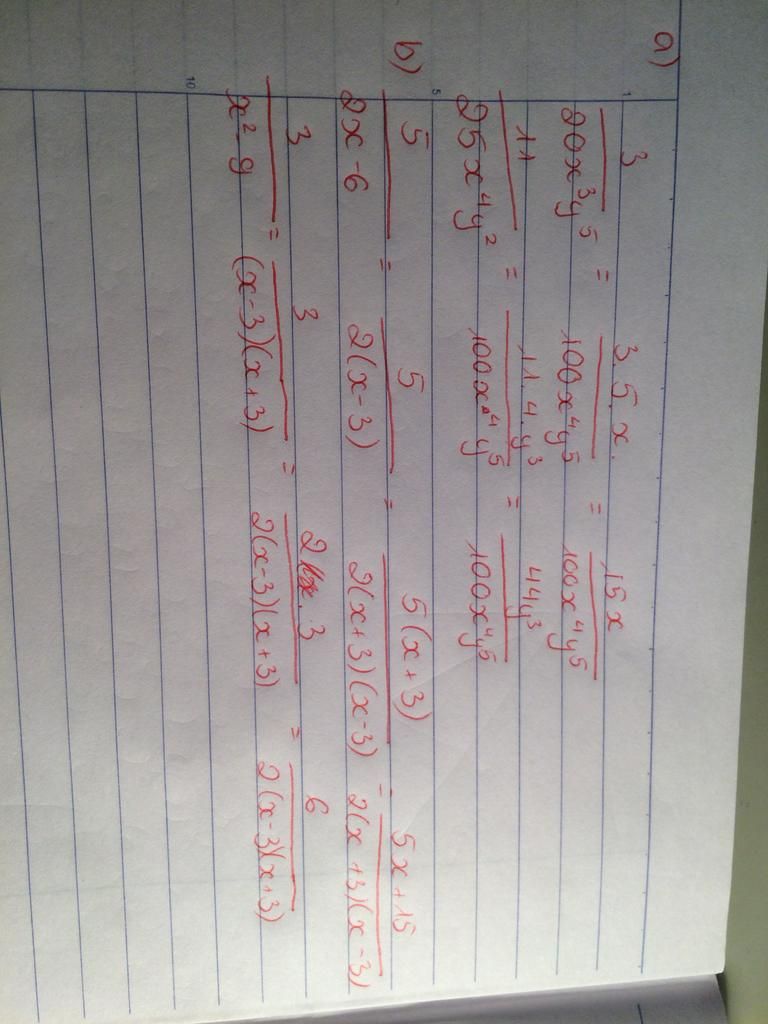 a) 3/20x³y⁵ = 3.5.x./100x⁴y⁵ = 15x/100x⁴y⁵
11/25x⁴y² = 11.4.y³/100x⁴y⁵ = 44y³/100x⁴y⁵
b) 5/2x-6 = 5/2(x-3) = 5(x+3)/2(x+3)(x-3) = 5x+15/2(x+3)(x-3)
3/x²-9 = 3/(x-3)(x+3) = 2.3/2(x-3)(x+3) = 6/2(x-3)(x+3)
1
5
10